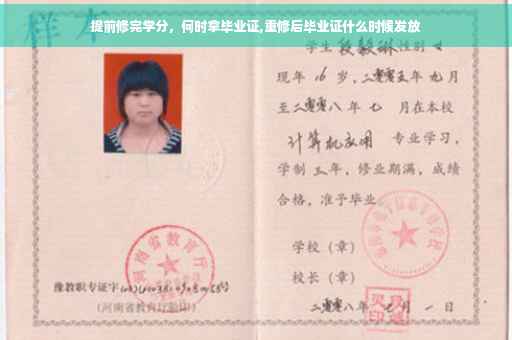 提前修完学分，何时拿毕业证,重修后毕业证什么时候发放
样本
学生段毅琳性别女
现年16岁，二零零五年九月
至二零零八年七月在本校
计算机应用 专业学习，
学制三年，修业期满，成绩
合格，准予毕业
学校（章）
校长（章）
二零零八年 月一日
河南省教育厅
豫教职专证字
(河南省教育厅验印)